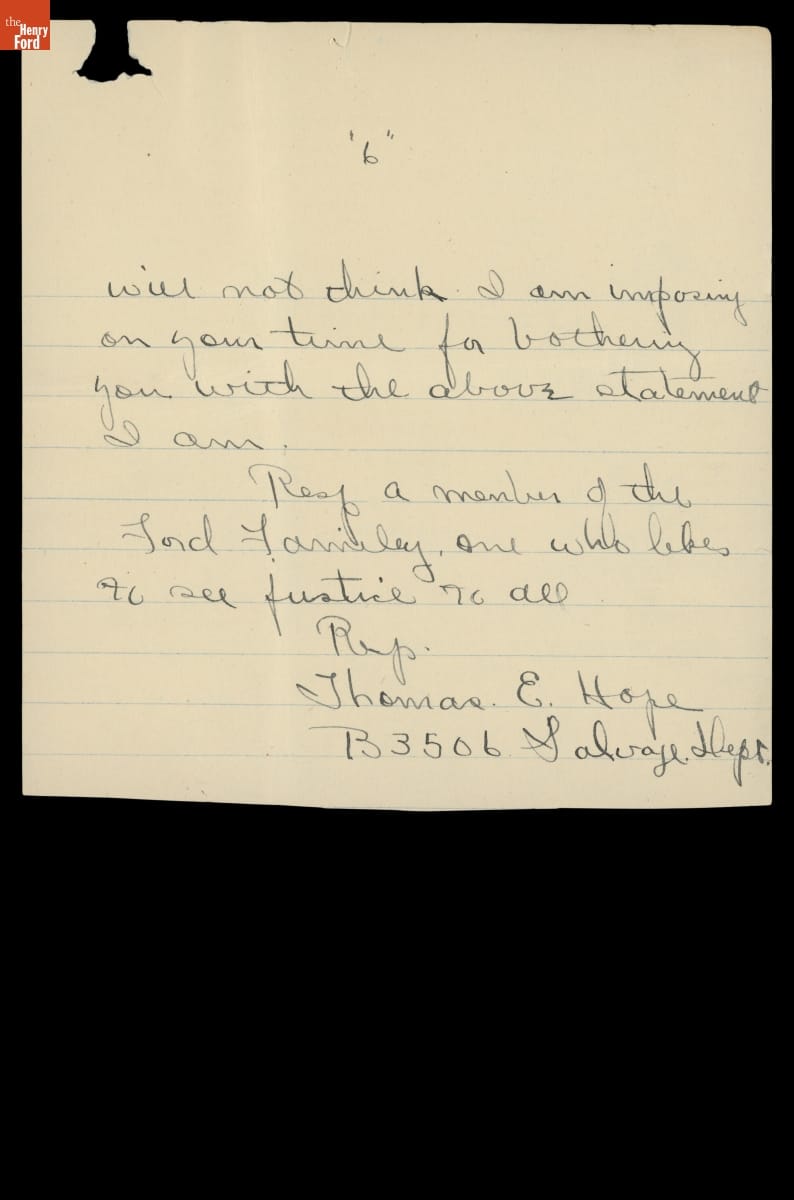 the
Henry
Ford
"6"
will not think I am imposing
on your time for bothering
you with the above statement
I am.
Resp a member of the
Ford Family, one who likes
to see justice to all
Resp.
Thomas. E. Hope
B3506 Salvage. Dept.